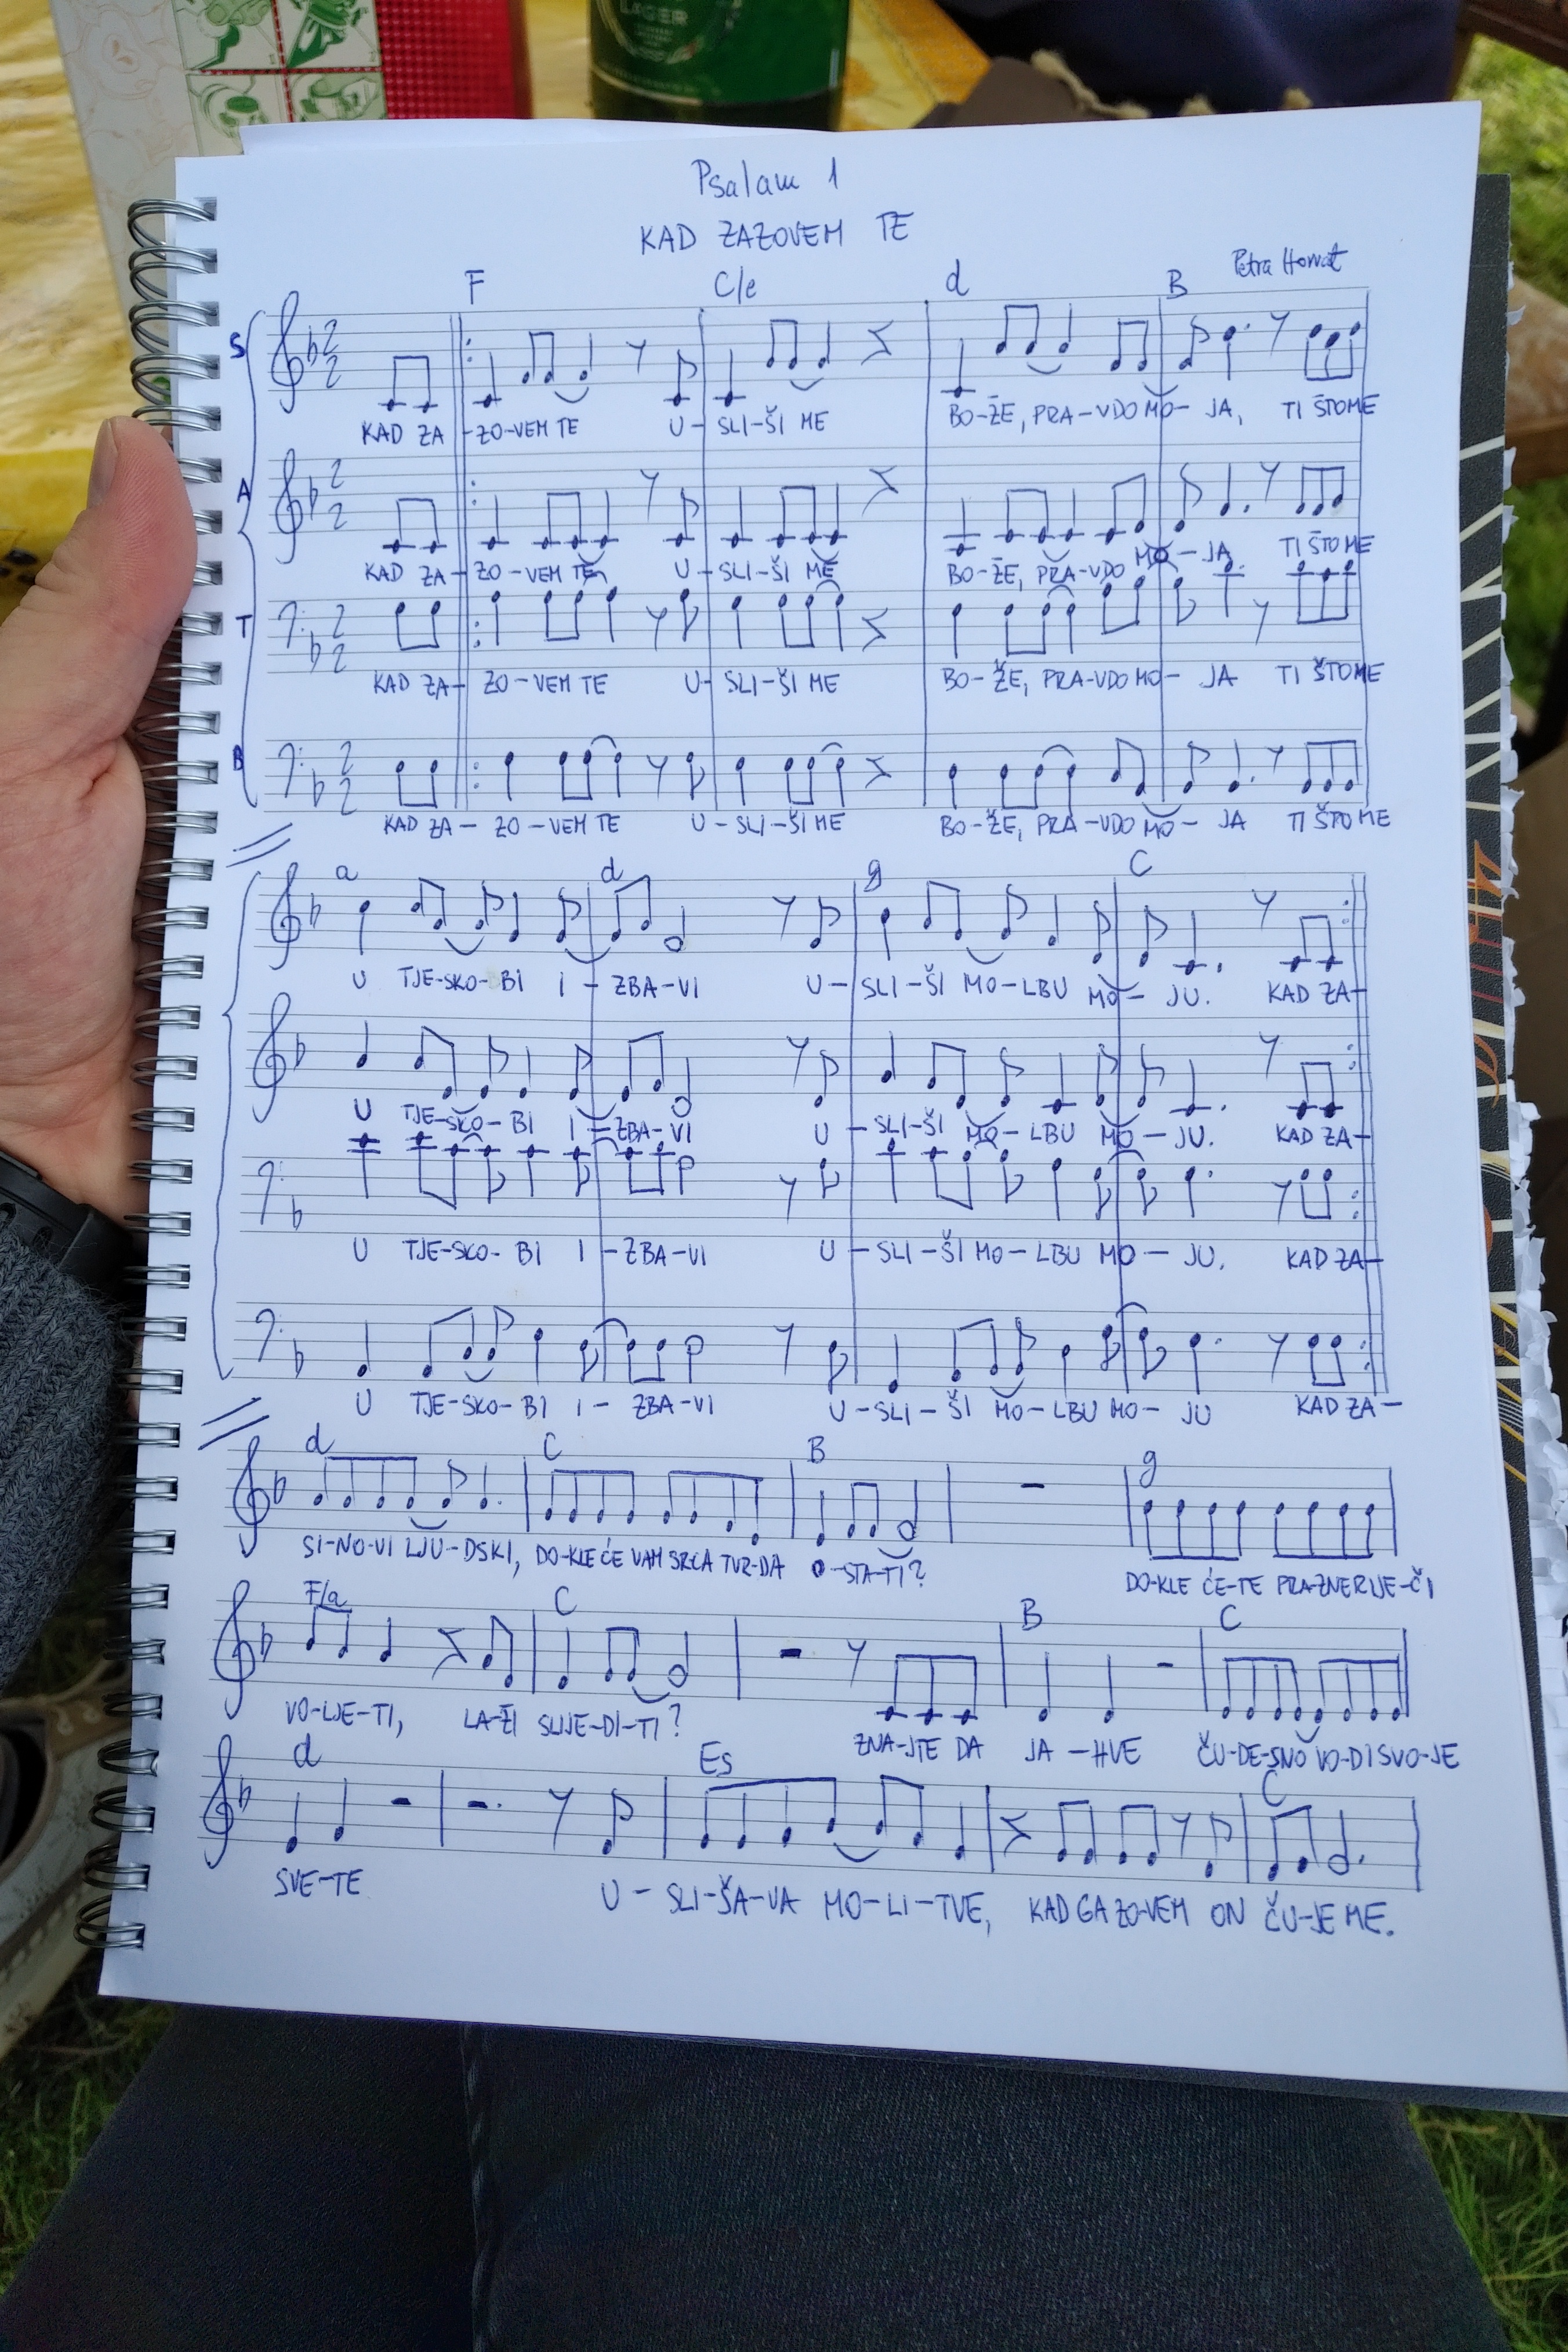 LAGER
Psalam 1
KAD ZAZOVEM TE
Petra Horvat
F C/e d B
S
KAD ZA-ZO-VEM TE U-SLI-ŠI ME BO-ŽE, PRA-VDO MO-JA, TI ŠTO ME
A
KAD ZA-ZO-VEM TE U-SLI-ŠI ME BO-ŽE, PRA-VDO MO-JA. TI ŠTO ME
T
KAD ZA-ZO-VEM TE U-SLI-ŠI ME BO-ŽE, PRA-VDO MO-JA TI ŠTO ME
B
KAD ZA-ZO-VEM TE U-SLI-ŠI ME BO-ŽE, PRA-VDO MO-JA TI ŠTO ME
a d g C
U TJE-SKO-BI I-ZBA-VI U-SLI-ŠI MO-LBU MO-JU. KAD ZA-
U TJE-SKO-BI I-ZBA-VI U-SLI-ŠI MO-LBU MO-JU. KAD ZA-
U TJE-SKO-BI I-ZBA-VI U-SLI-ŠI MO-LBU MO-JU. KAD ZA-
U TJE-SKO-BI I-ZBA-VI U-SLI-ŠI MO-LBU MO-JU KAD ZA-
d C B g
SI-NO-VI LJU-DSKI, DO-KLE ĆE VAM SRCA TVR-DA O-STA-TI? DO-KLE ĆE-TE PRA-ZNE RIJE-ČI
F/a C B C
VO-LJE-TI, LA-ŽI SLIJE-DI-TI? ZNA-JTE DA JA-HVE ČU-DE-SNO VO-DI SVO-JE
d Es C
SVE-TE U-SLI-ŠA-VA MO-LI-TVE, KAD GA ZO-VEM ON ČU-JE ME.